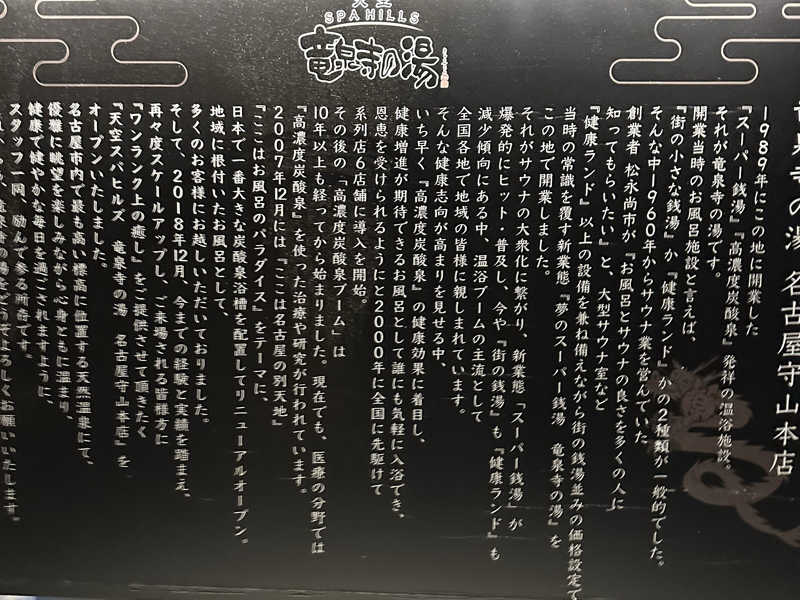 SPA HILLS
竜泉寺の湯
竜泉寺の湯 名古屋守山本店
1989年にこの地に開業した
『スーパー銭湯』『高濃度炭酸泉』発祥の温浴施設。
それが竜泉寺の湯です。
開業当時のお風呂施設と言えば、
『街の小さな銭湯』か『健康ランド』かの2種類が一般的でした。
そんな中1960年からサウナ業を営んでいた
創業者 松永尚市が『お風呂とサウナの良さを多くの人に
知ってもらいたい』と、大型サウナ室など
『健康ランド』以上の設備を兼ね備えながら街の銭湯並みの価格設定で
当時の常識を覆す新業態『夢のスーパー銭湯 竜泉寺の湯』を
この地で開業しました。
それがサウナの大衆化に繋がり、新業態『スーパー銭湯』が
爆発的にヒット・普及し、今や『街の銭湯』も『健康ランド』も
減少傾向にある中、温浴ブームの主流として
全国各地で地域の皆様に親しまれています。
そんな健康志向が高まりを見せる中、
いち早く『高濃度炭酸泉』の健康効果に着目し、
健康増進が期待できるお風呂として誰にも気軽に入浴でき、
恩恵を受けられるようにと2000年に全国に先駆けて
系列店6店舗に導入を開始。
その後の『高濃度炭酸泉ブーム』は
10年以上も経ってから始まりました。現在でも、医療の分野では
『高濃度炭酸泉』を使った治療や研究が行われています。
2007年12月には『ここは名古屋の別天地』
『ここはお風呂のパラダイス』をテーマに、
日本で一番大きな炭酸泉浴槽を配置してリニューアルオープン。
地域に根付いたお風呂として、
多くのお客様にお越しいただいておりました。
そして、2018年12月、今までの経験と実績を踏まえ、
再々度スケールアップし、ご来場される皆様方に
『ワンランク上の癒し』をご提供させて頂きたく
『天空スパヒルズ 竜泉寺の湯 名古屋守山本店』を
オープンいたしました。
名古屋市内で最も高い標高に位置する天然温泉にて、
優雅に眺望を楽しみながら心身ともに温まり
健康で健やかな毎日を過ごされますように、
スタッフ一同、励んで参る所存です。
竜泉寺の湯をどうぞよろしくお願いいたします。